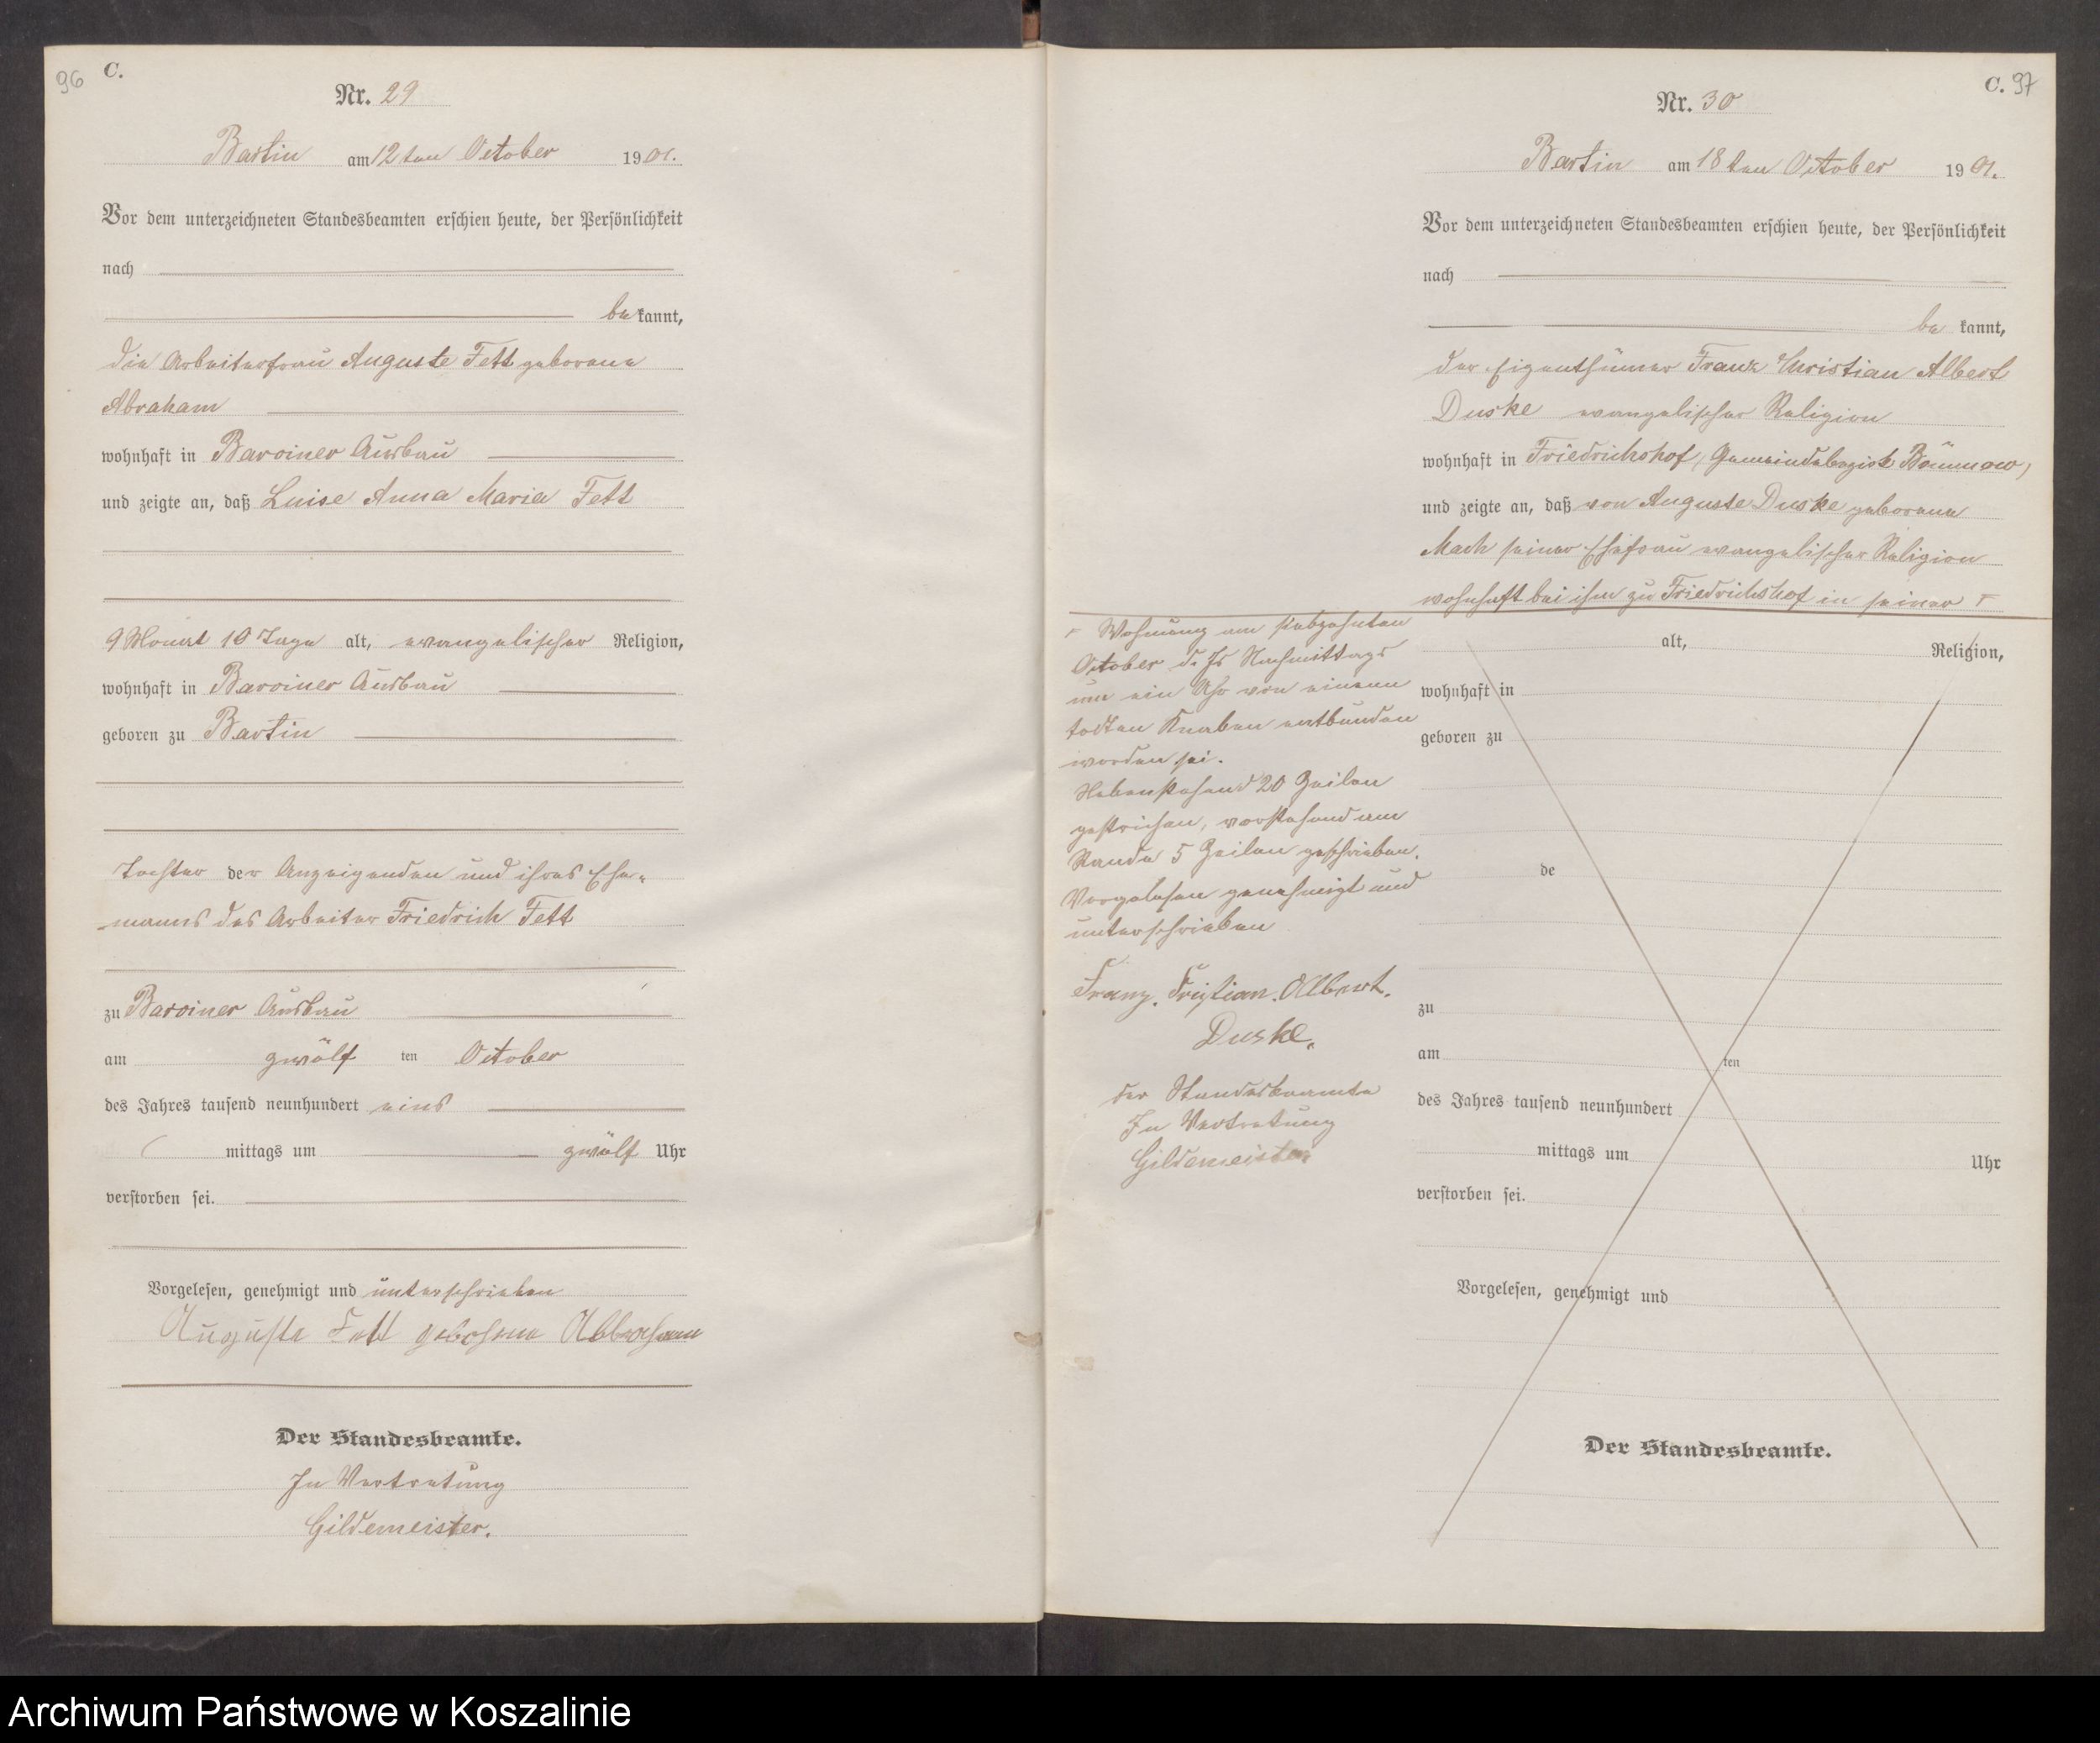 96
C.
Nr. 29
Bartin am 12ten October 1901.
Vor dem unterzeichneten Standesbeamten erschien heute, der Persönlichkeit
nach
bekannt,
die Arbeiterfrau Auguste Fett geborene
Abraham
wohnhaft in Barviner Ausbau
und zeigte an, daß Luise Anna Maria Fett
9 Monat 10 Tage alt, evangelischer Religion,
wohnhaft in Barviner Ausbau
geboren zu Bartin
Tochter der Anzeigenden und ihres Ehe-
manns des Arbeiter Friedrich Fett
zu Barviner Ausbau
am zwölf ten October
des Jahres tausend neunhundert eins
mittags um zwölf Uhr
verstorben sei.
Vorgelesen, genehmigt und unterschrieben
Auguste Fett geborene Abbraham
Der Standesbeamte.
In Vertretung
Gildemeister.
C. 97
Nr. 30
Bartin am 18ten October 1901.
Vor dem unterzeichneten Standesbeamten erschien heute, der Persönlichkeit
nach
be kannt,
der Eigenthümer Franz Christian Albert
Duske evangelischer Religion
wohnhaft in Friedrichshof, Gemeindebezirk
und zeigte an, daß von Auguste Duske geborene
Mach seiner Ehefrau evangelischer Religion
wohnhaft bei ihm zu Friedrichshof in seiner
Wohnung am siebzehnten
October d. Js Nachmittags
um ein Uhr von einem
todten Knaben entbunden
worden sei.
Nebenstehend 20 Zeilen
gestrichen, vorstehend am
Rande 5 Zeilen geschrieben.
Vorgelesen genehmigt und
unterschrieben
Franz. Albert.
Duske.
der Standesbeamte
In Vertretung
Gildemeister
alt, Religion,
wohnhaft in
geboren zu
de
zu
am ten
des Jahres tausend neunhundert
mittags um Uhr
verstorben sei.
Vorgelesen, genehmigt und
Der Standesbeamte.
Archiwum Państwowe w Koszalinie